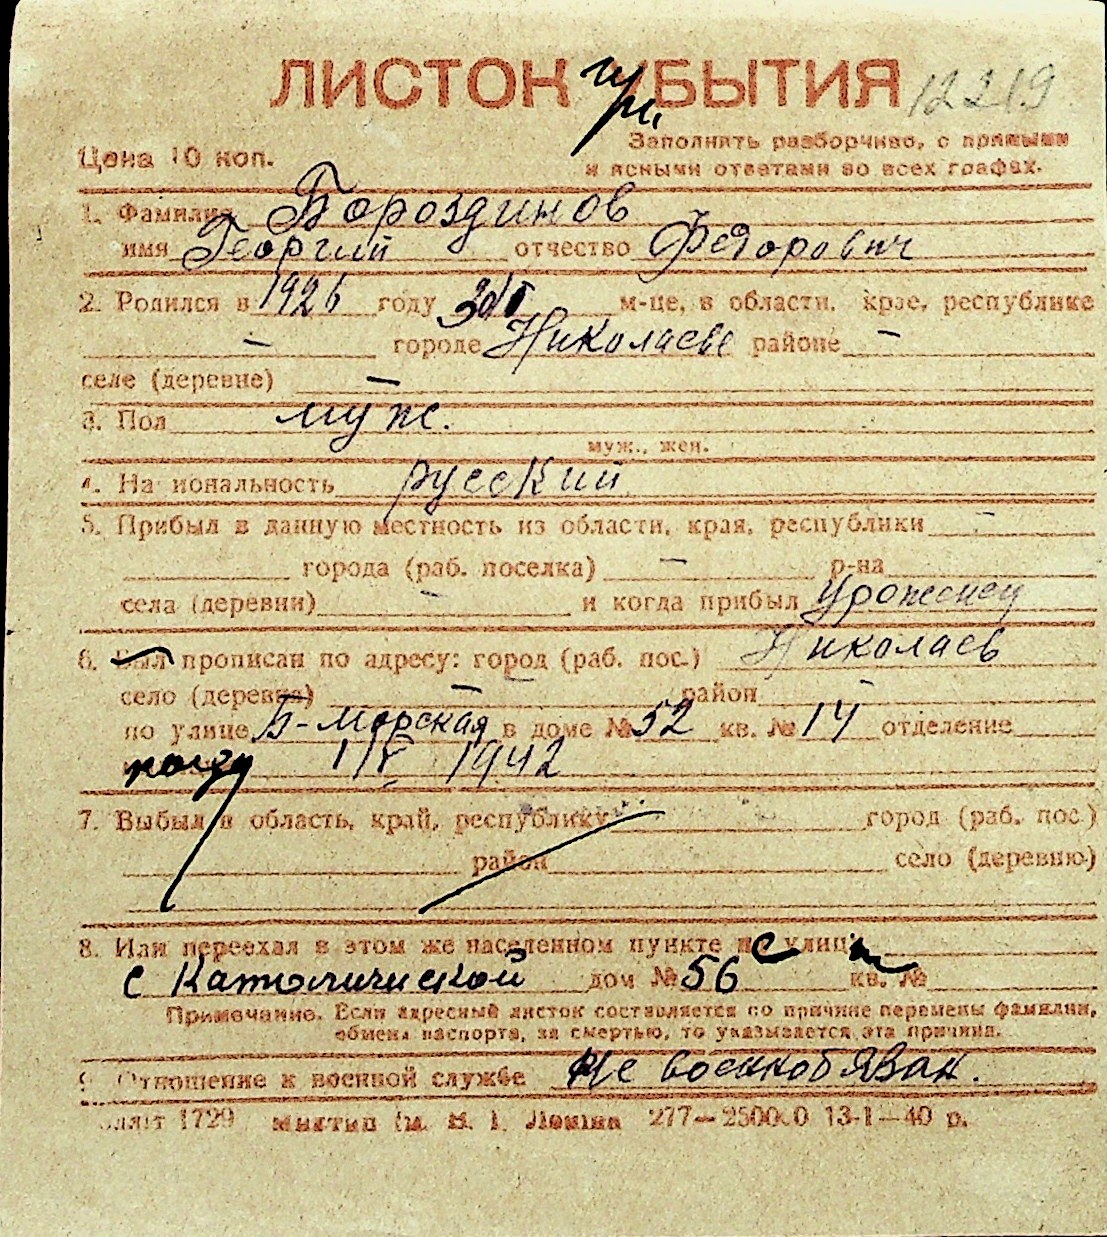 ЛИСТОК УБЫТИЯ 12219
при
Цена 10 коп.
Заполнять разборчиво, с прямыми
и ясными ответами во всех графах.
1. Фамилия Бороздинов
имя Георгий отчество Федорович
2. Родился в 1926 году м-це, в области, крае, республике
— городе Николаеве районе —
селе (деревне) —
3. Пол муж.
муж., жен.
4. Национальность русский
5. Прибыл в данную местность из области, края, республики —
города (раб. поселка) — р-на
села (деревни) — и когда прибыл уроженец
6. Был прописан по адресу: город (раб. пос.) Николаев
село (деревня) — район —
по улице Б-Морская в доме № 52 кв. № 14 отделение
1/V 1942
7. Выбыл в область, край, республику город (раб. пос.)
район село (деревню)
8. Или переехал в этом же населенном пункте с улицы
с Католической дом № 56 кв. №
Примечание. Если адресный листок составляется по причине перемены фамилии,
обмена паспорта, за смертью, то указывается эта причина.
9. Отношение к военной службе Не военнообязан.
1729 277—250000 13-1—40 р.